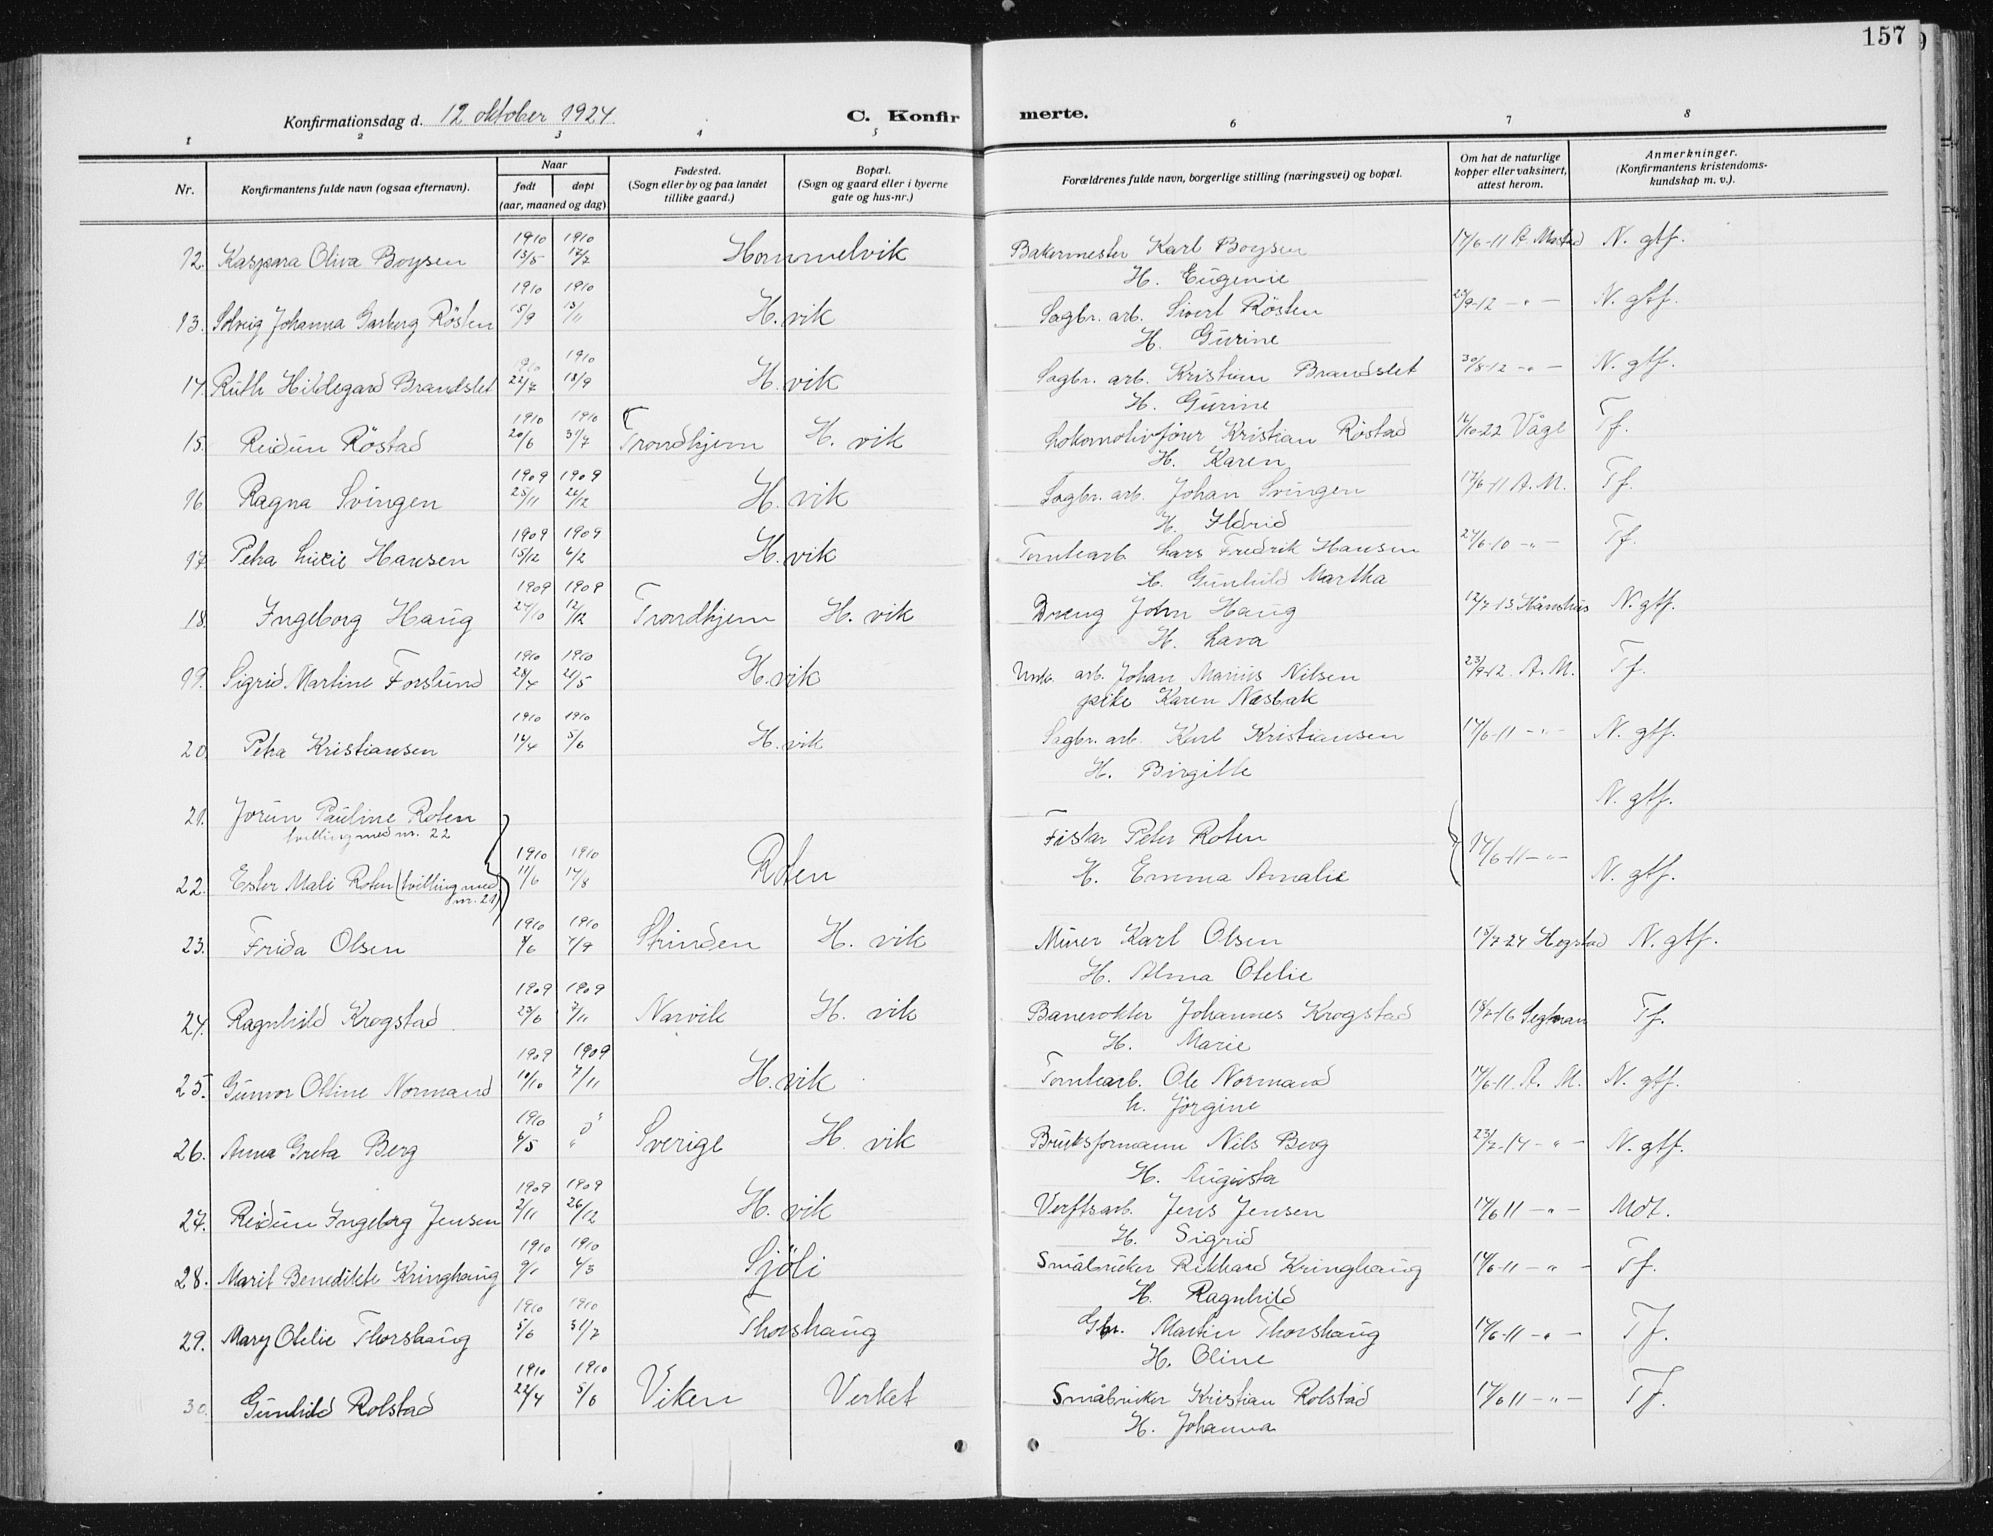 157
Konfirmationsdag d. 12 oktober 1924.
C. Konfirmerte.
1 2 3 4 5 6 7 8
Nr. Konfirmantens fulde navn (ogsaa efternavn). Naar født døpt (aar, maaned og dag) Fødested. (Sogn eller by og paa landet tillike gaard.) Bopæl. (Sogn og gaard eller i byerne gate og hus-nr.) Forældrenes fulde navn, borgerlige stilling (næringsvei) og bopæl. Om hat de naturlige kopper eller vaksinert, attest herom. Anmerkninger. (Konfirmantens kristendomskundskap m. v.).
1910 1910
12. Kaspara Oliva Boysen 13/5 17/7 Hommelvik Bakermester Karl Boysen 17/6-11 A. Mostad N. gtf.
H. Eugenie
1910 1910
13. Solveig Johanna Garberg Rösten 15/9 13/11 H. vik Sagbr. arb. Sivert Rösten 23/9-12 -"- N. gtf.
H. Gurine
1910 1910
14. Ruth Hildegard Brandslet 22/7 18/9 H. vik Sagbr. arb. Kristian Brandslet 30/8-12 -"- N. gtf.
H. Gurine
1910 1910
15. Reidun Röstad 20/6 31/7 Trondhjem H. vik Lokomotivfører Kristian Röstad 14/10-22 Vågl Tf.
H. Karen
1909 1909
16 Ragna Svingen 25/11 26/12 H. vik Sagbr. arb. Johan Svingen 17/6-11 A. M. Tf.
H. Ildrid
1909 1909
17. Petra Lucie Hansen 15/12 6/2 H. vik Tomtearb. Lars Fredrik Hansen 24/6-10 -"- Tf.
H. Gunhild Martha
1909 1909
18. Ingeborg Haug 27/10 12/12 Trondhjem H. vik Dreng John Haug 12/7-13 N. gtf.
H. Lava
1910 1910
19. Sigrid Martine Forslund 28/4 20/5 H. vik Unk. arb. Johan Marius Nilsen 23/9-12. A. M. Tf.
pike Karen Næsbak
1910 1910
20. Petra Kristiansen 14/4 5/6 H. vik Sagbr. arb. Karl Kristiansen 17/6-11 -"- N. gtf.
H. Birgitte
21. Jorun Pauline Roten N. gtf.
tvilling med nr. 22 Fisker Peter Roten
1910 1910
22. Ester Mali Roten (tvilling med nr. 21) 11/6 14/8 Roten H. Emma Amalie 17/6-11 -"- N. gtf.
1910 1910
23. Frida Olsen 4/6 4/9 Strinden H. vik Minør Karl Olsen 15/7-24 Hegstad N. gtf.
H. Alma Otelie
1909 1909
24. Ragnhild Krogstad 23/6 7/11 Narvik H. vik Banevokter Johannes Krogstad 18/7-16 Tf.
H. Marie
1909 1909
25. Gunvor Otline Normand 10/10 7/11 H. vik Tomtearb. Ole Normand 17/6-11 A. M. N. gtf.
h. Jörgine
1910
26. Anna Greta Berg 6/5 " Sverige H. vik Bruksformann Nils Berg 23/7-14 -"- N. gtf.
H. Augusta
1909 1909
27. Reidun Ingeborg Jensen 2/11 26/12 H. vik Verftsarb. Jens Jensen 17/6 11 -"- Mdt.
H. Sigrid
1910 1910
28. Marit Benedikte Kringhaug 9/1 6/3 Sjöli Småbruker Rikhard Kringhaug 17/6-11 -"- Tf.
H. Ragnhild
1910 1910
29. Mary Otelie Thorshaug 5/6 31/7 Thorshaug Gbr. Martin Thorshaug 17/6-11 -"- Tf.
H. Oline
1910 1910
30. Gunhild Rolstad 22/4 5/6 Viken Verket Småbruker Kristian Rolstad 17/6 11 -"- Tf.
H. Johanna